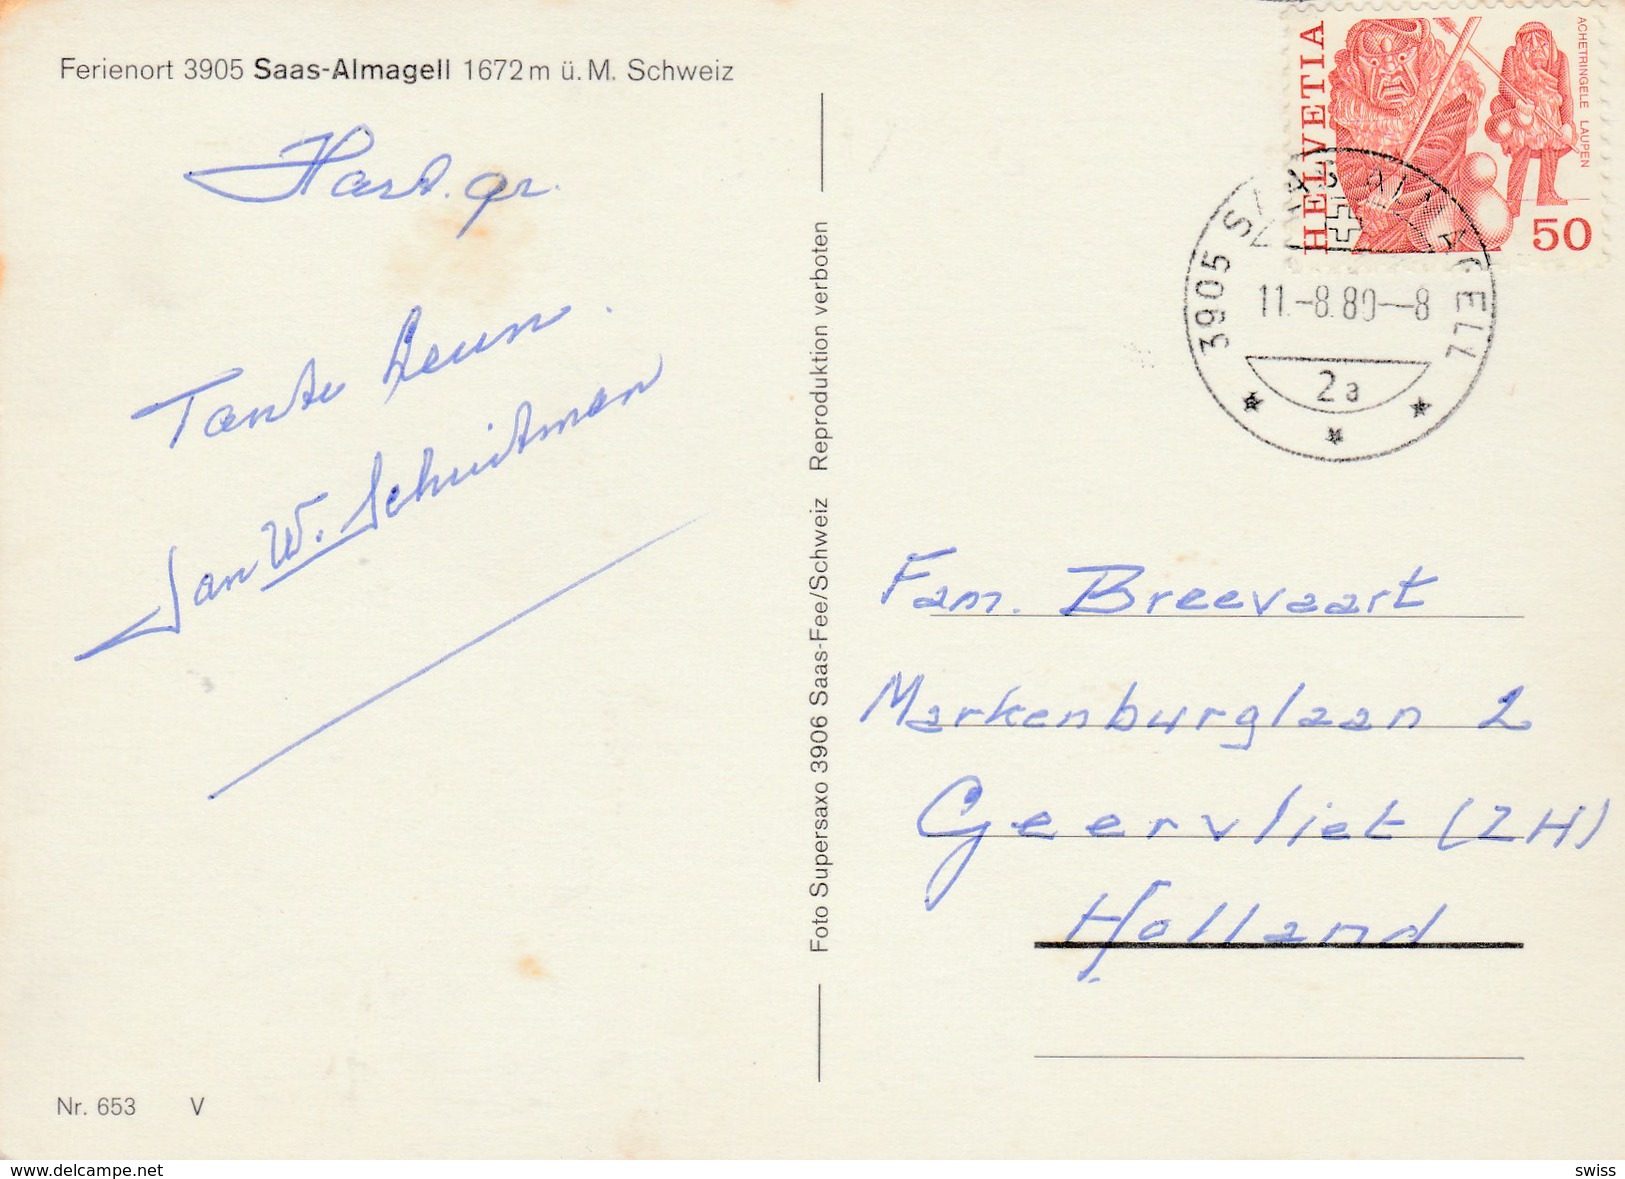 Ferienort 3905 Saas-Almagell 1672 m ü. M. Schweiz
Hart. gr.
Tante
Jan W. Schuitman
Nr. 653 V
Foto Supersaxo 3906 Saas-Fee/Schweiz Reproduktion verboten
HELVETIA
ACHETRINGELE LAUPEN
50
3905 SAAS ALMAGELL
11.-8.80--8
2a
Fam. Breevaart
Markenburglaan 2
Geervliet (ZH)
Holland
www.delcampe.net
swiss